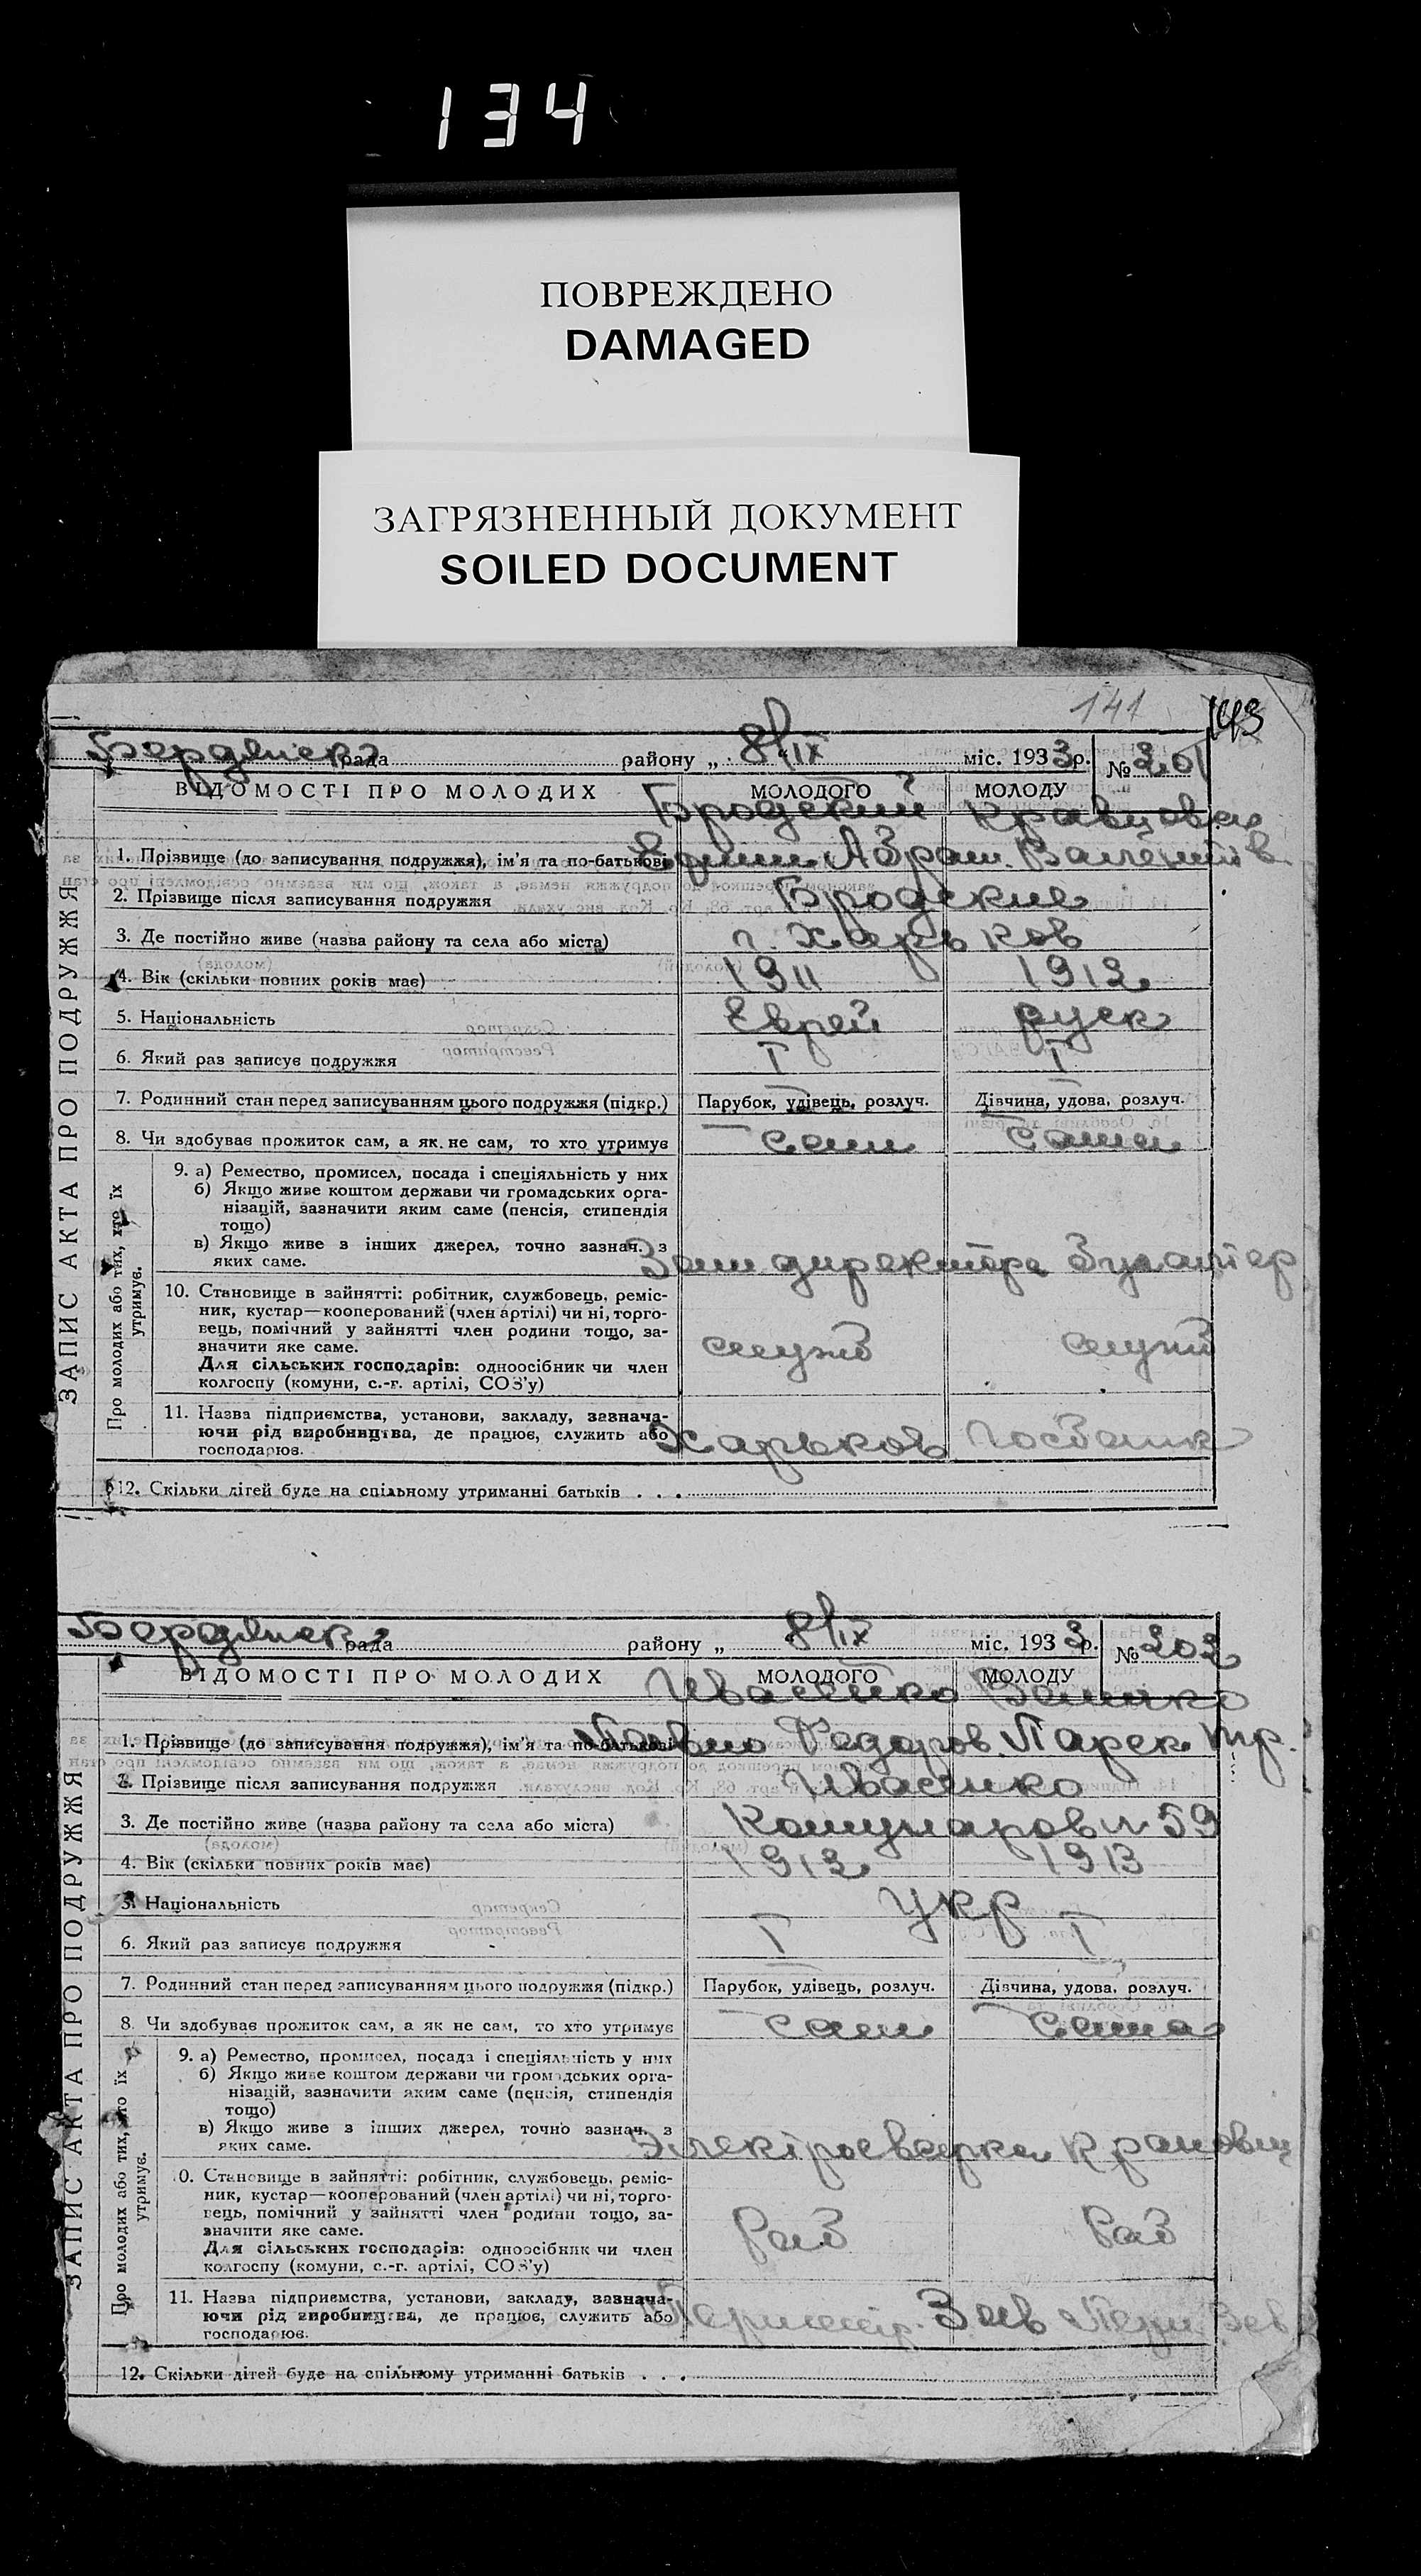 134
ПОВРЕЖДЕНО
DAMAGED
ЗАГРЯЗНЕННЫЙ ДОКУМЕНТ
SOILED DOCUMENT
141
143
Бердянск рада району „ 8/IX міс. 1933 р. № 201
ЗАПИС АКТА ПРО ПОДРУЖЖЯ
ВІДОМОСТІ ПРО МОЛОДИХ МОЛОДОГО МОЛОДУ
Бродский Кравцова
1. Прізвище (до записування подружжя), ім'я та по-батькові Абрам
2. Прізвище після записування подружжя Бродские
3. Де постійно живе (назва району та села або міста) г. Харьков
4. Вік (скільки повних років має) 1911 1912
5. Національність Еврей руск
6. Який раз записує подружжя I I
7. Родинний стан перед записуванням цього подружжя (підкр.) Парубок, удівець, розлуч. Дівчина, удова, розлуч.
8. Чи здобуває прожиток сам, а як не сам, то хто утримує сам сама
Про молодих або тих, хто їх утримує.
9. а) Ремество, промисел, посада і спеціяльність у них
б) Якщо живе коштом держави чи громадських орга-
нізацій, зазначити яким саме (пенсія, стипендія
тощо)
в) Якщо живе з інших джерел, точно зазнач. з
яких саме. Зам директора бугалтер
10. Становище в зайнятті: робітник, службовець, реміс-
ник, кустар—кооперований (член артілі) чи ні, торго-
вець, помічний у зайнятті член родини тощо, за-
значити яке саме. служб служ
Для сільських господарів: одноосібник чи член
колгоспу (комуни, с.-г. артілі, СОЗ'у)
11. Назва підприємства, установи, закладу, зазнача-
ючи рід виробництва, де працює, служить або Харьков Госбанк
господарює.
12. Скільки дітей буде на спільному утриманні батьків . . .
Бердянск рада району „ 8/IX міс. 1933 р. № 202
ЗАПИС АКТА ПРО ПОДРУЖЖЯ
ВІДОМОСТІ ПРО МОЛОДИХ МОЛОДОГО МОЛОДУ
Ивасенко
1. Прізвище (до записування подружжя), ім'я та по-батькові Федоров
2. Прізвище після записування подружжя Ивасенко
3. Де постійно живе (назва району та села або міста) Комунаров 59
4. Вік (скільки повних років має) 1912 1913
5. Національність укр
6. Який раз записує подружжя I I
7. Родинний стан перед записуванням цього подружжя (підкр.) Парубок, удівець, розлуч. Дівчина, удова, розлуч.
8. Чи здобуває прожиток сам, а як не сам, то хто утримує сам сама
Про молодих або тих, хто їх утримує.
9. а) Ремество, промисел, посада і спеціяльність у них
б) Якщо живе коштом держави чи громадських орга-
нізацій, зазначити яким саме (пенсія, стипендія
тощо)
в) Якщо живе з інших джерел, точно зазнач. з
яких саме. Электросварка крановщ
10. Становище в зайнятті: робітник, службовець, реміс-
ник, кустар—кооперований (член артілі) чи ні, торго-
вець, помічний у зайнятті член родини тощо, за-
значити яке саме. Раб Раб
Для сільських господарів: одноосібник чи член
колгоспу (комуни, с.-г. артілі, СОЗ'у)
11. Назва підприємства, установи, закладу, зазнача-
ючи рід виробництва, де працює, служить або Зав Зав
господарює.
12. Скільки дітей буде на спільному утриманні батьків . . .